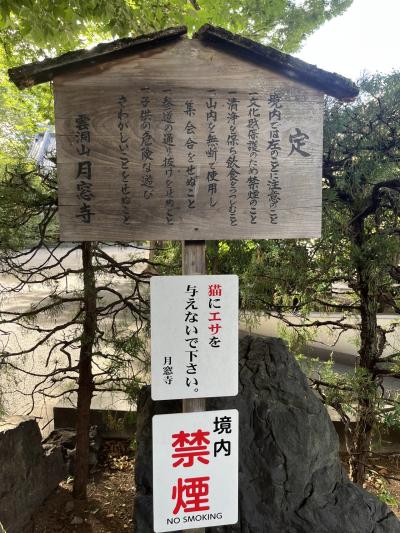 定
境内では左のことに注意のこと
一文化財保護のため禁煙のこと
一清浄を保ち飲食をつつむこと
一山内を無断で使用し
集会合をせぬこと
一参道の通り抜けを止めこと
一子供の危険な遊び
さわがしいことをせぬこと
雲洞山 月窓寺
猫にエサを
与えないで下さい。
月窓寺
境内
禁煙
NO SMOKING